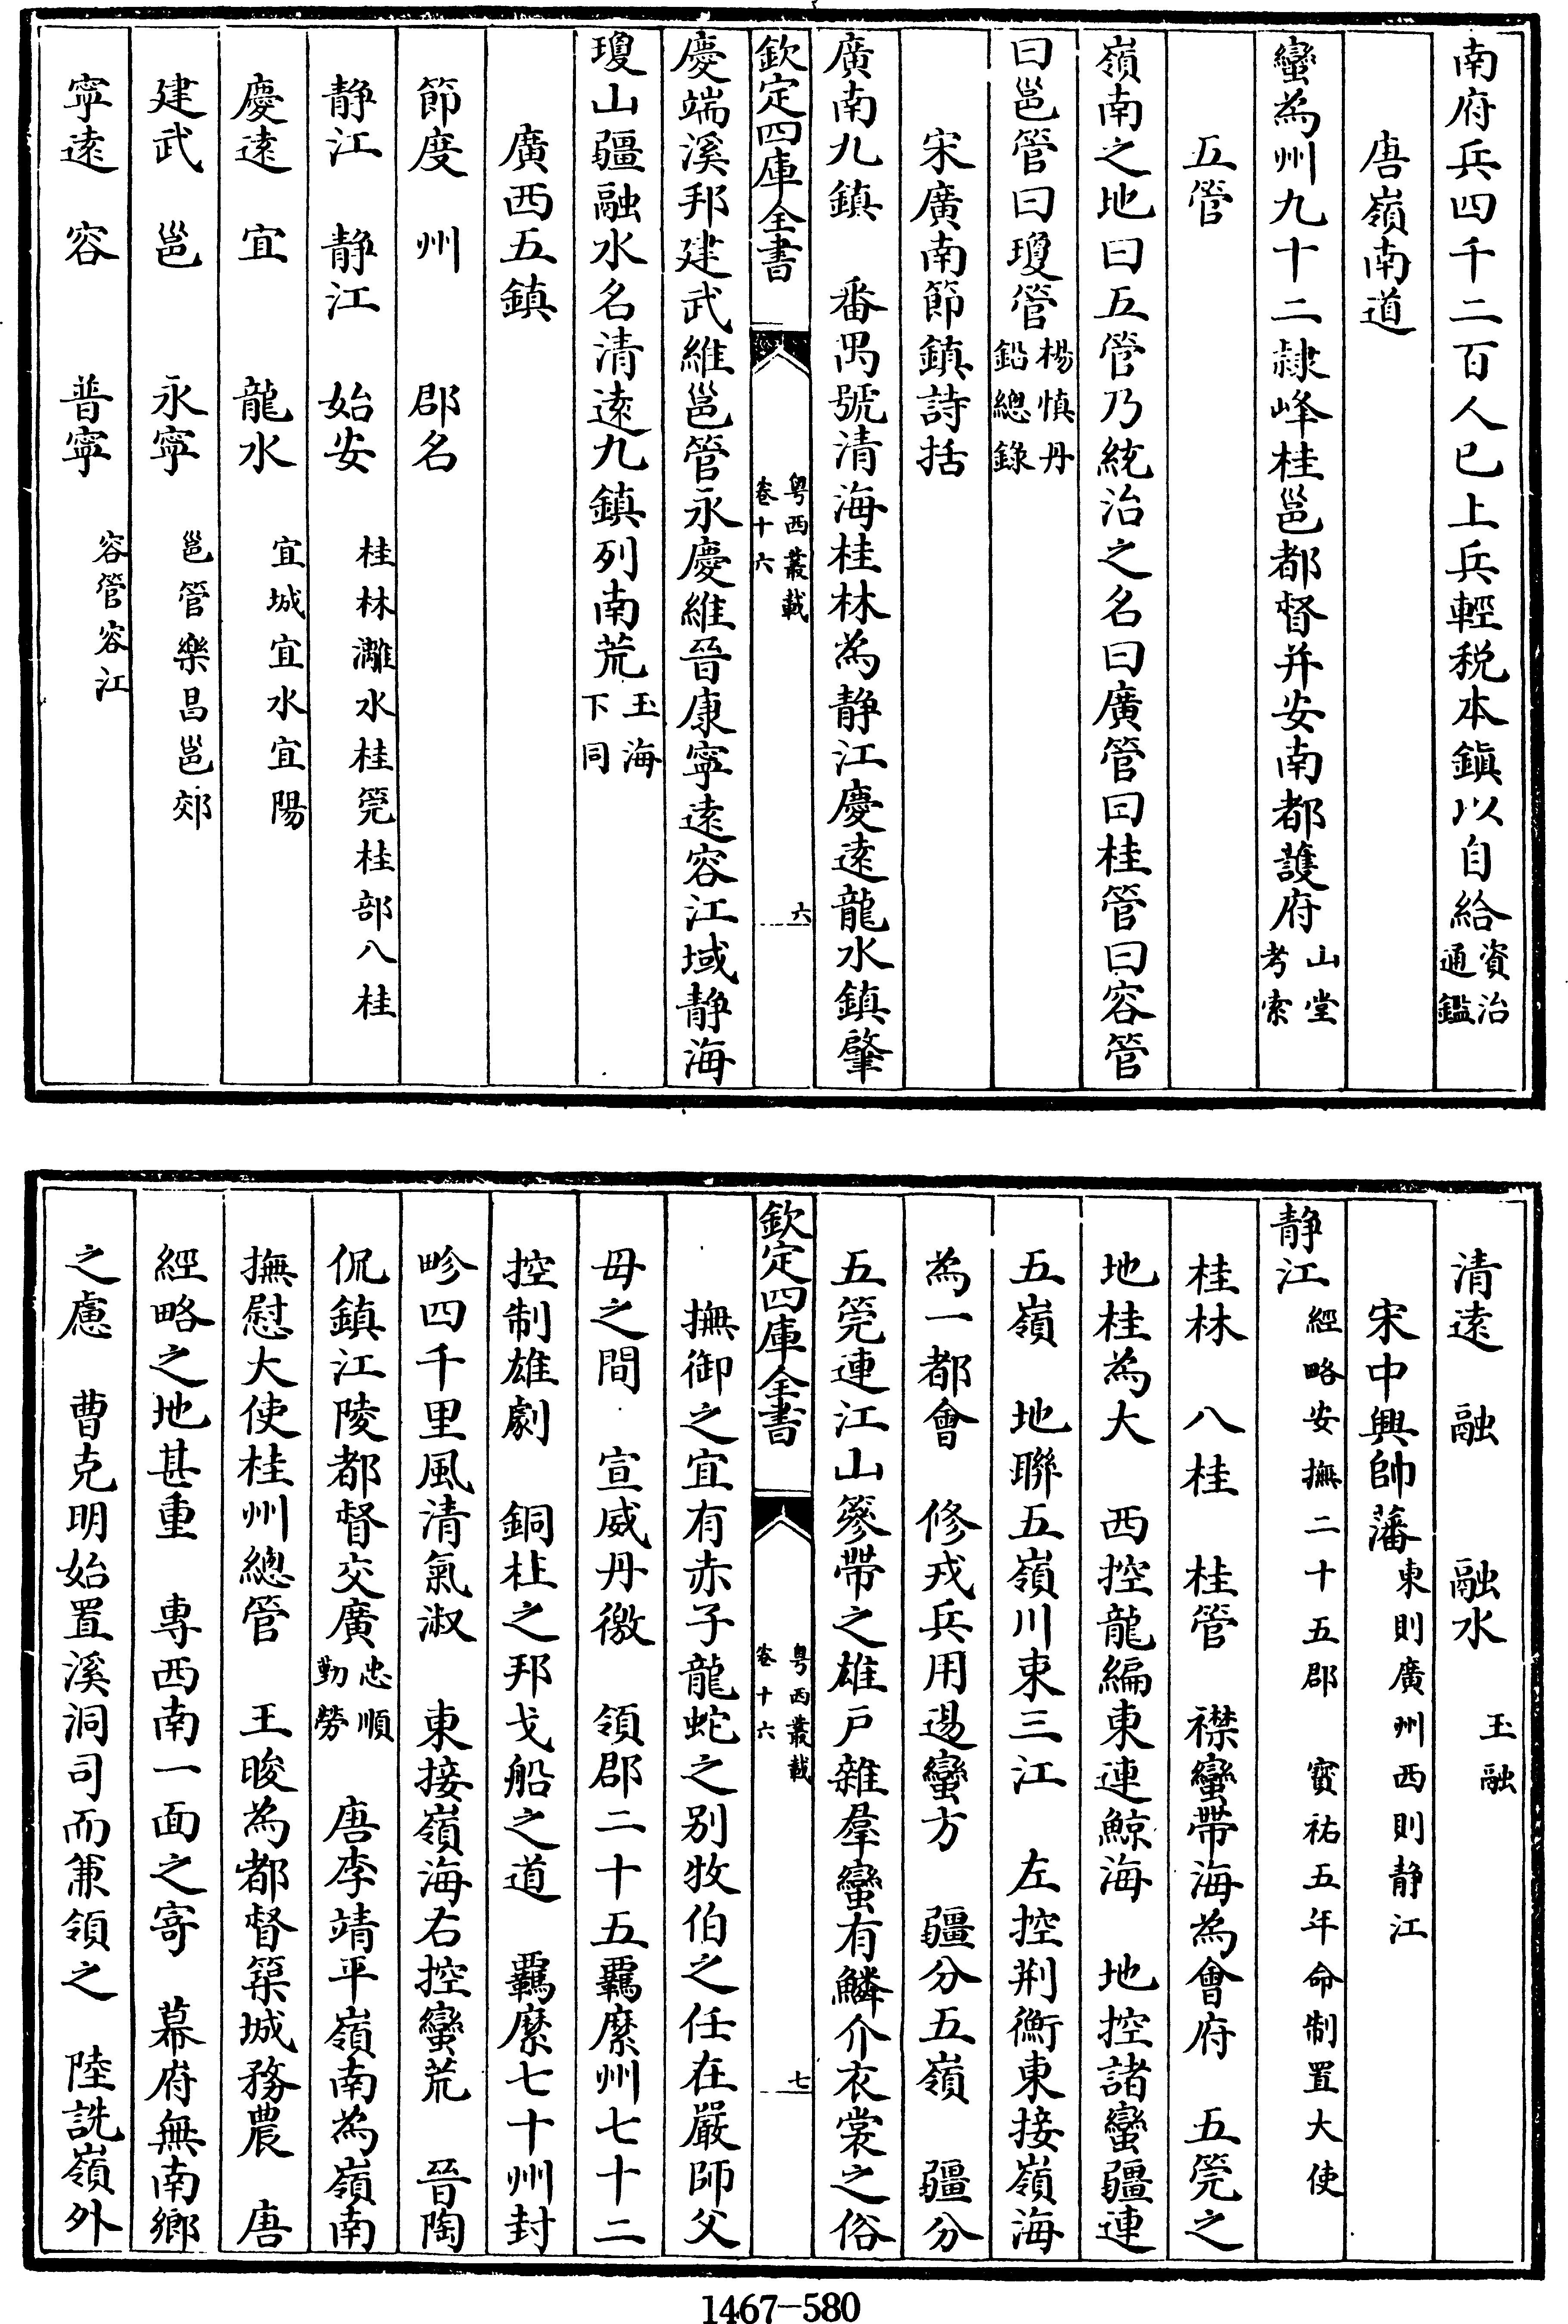 南府兵四千二百人已上兵輕税本鎮以自給資治通鑑
唐嶺南道
蠻為州九十二隷峰桂邕都督并安南都護府山堂考索
五管
嶺南之地曰五管乃統治之名曰廣管曰桂管曰容管
曰邕管曰瓊管楊慎丹鉛總錄
宋廣南節鎮詩括
廣南九鎮 番禺號清海桂林為静江慶逺龍水鎮肇
欽定四庫全書
粤西叢載
卷十六
六
慶端溪邦建武維邕管永慶維晉康寧逺容江域静海
瓊山疆融水名清逺九鎮列南荒玉海下同
廣西五鎮
節度 州 郡名
静江 静江 始安 桂林灕水桂筦桂部八桂
慶逺 宜 龍水 宜城宜水宜陽
建武 邕 永寧 邕管樂昌邕郊
寧逺 容 普寧 容管容江
清逺 融 融水 玉融
宋中興帥藩東則廣州西則静江
静江經略安撫二十五郡 寳祐五年命制置大使
桂林 八桂 桂管 襟蠻帶海為會府 五筦之
地桂為大 西控龍編東連鯨海 地控諸蠻疆連
五嶺 地聯五嶺川束三江 左控荆衡東接嶺海
為一都會 修戎兵用逷蠻方 疆分五嶺 疆分
五筦連江山篸帶之雄戸雜羣蠻有鱗介衣裳之俗
欽定四庫全書
粤西叢載
卷十六
七
撫御之宜有赤子龍蛇之别牧伯之任在嚴師父
毋之間 宣威丹徼 領郡二十五羈縻州七十二
控制雄劇 銅柱之邦戈船之道 羈縻七十州封
畛四千里風清氣淑 東接嶺海右控蠻荒 晉陶
侃鎮江陵都督交廣忠順勤勞 唐李靖平嶺南為嶺南
撫慰大使桂州總管 王晙為都督築城務農 唐
經略之地甚重 專西南一面之寄 幕府無南鄉
之慮 曹克明始置溪洞司而兼領之 陸詵嶺外
1467-580